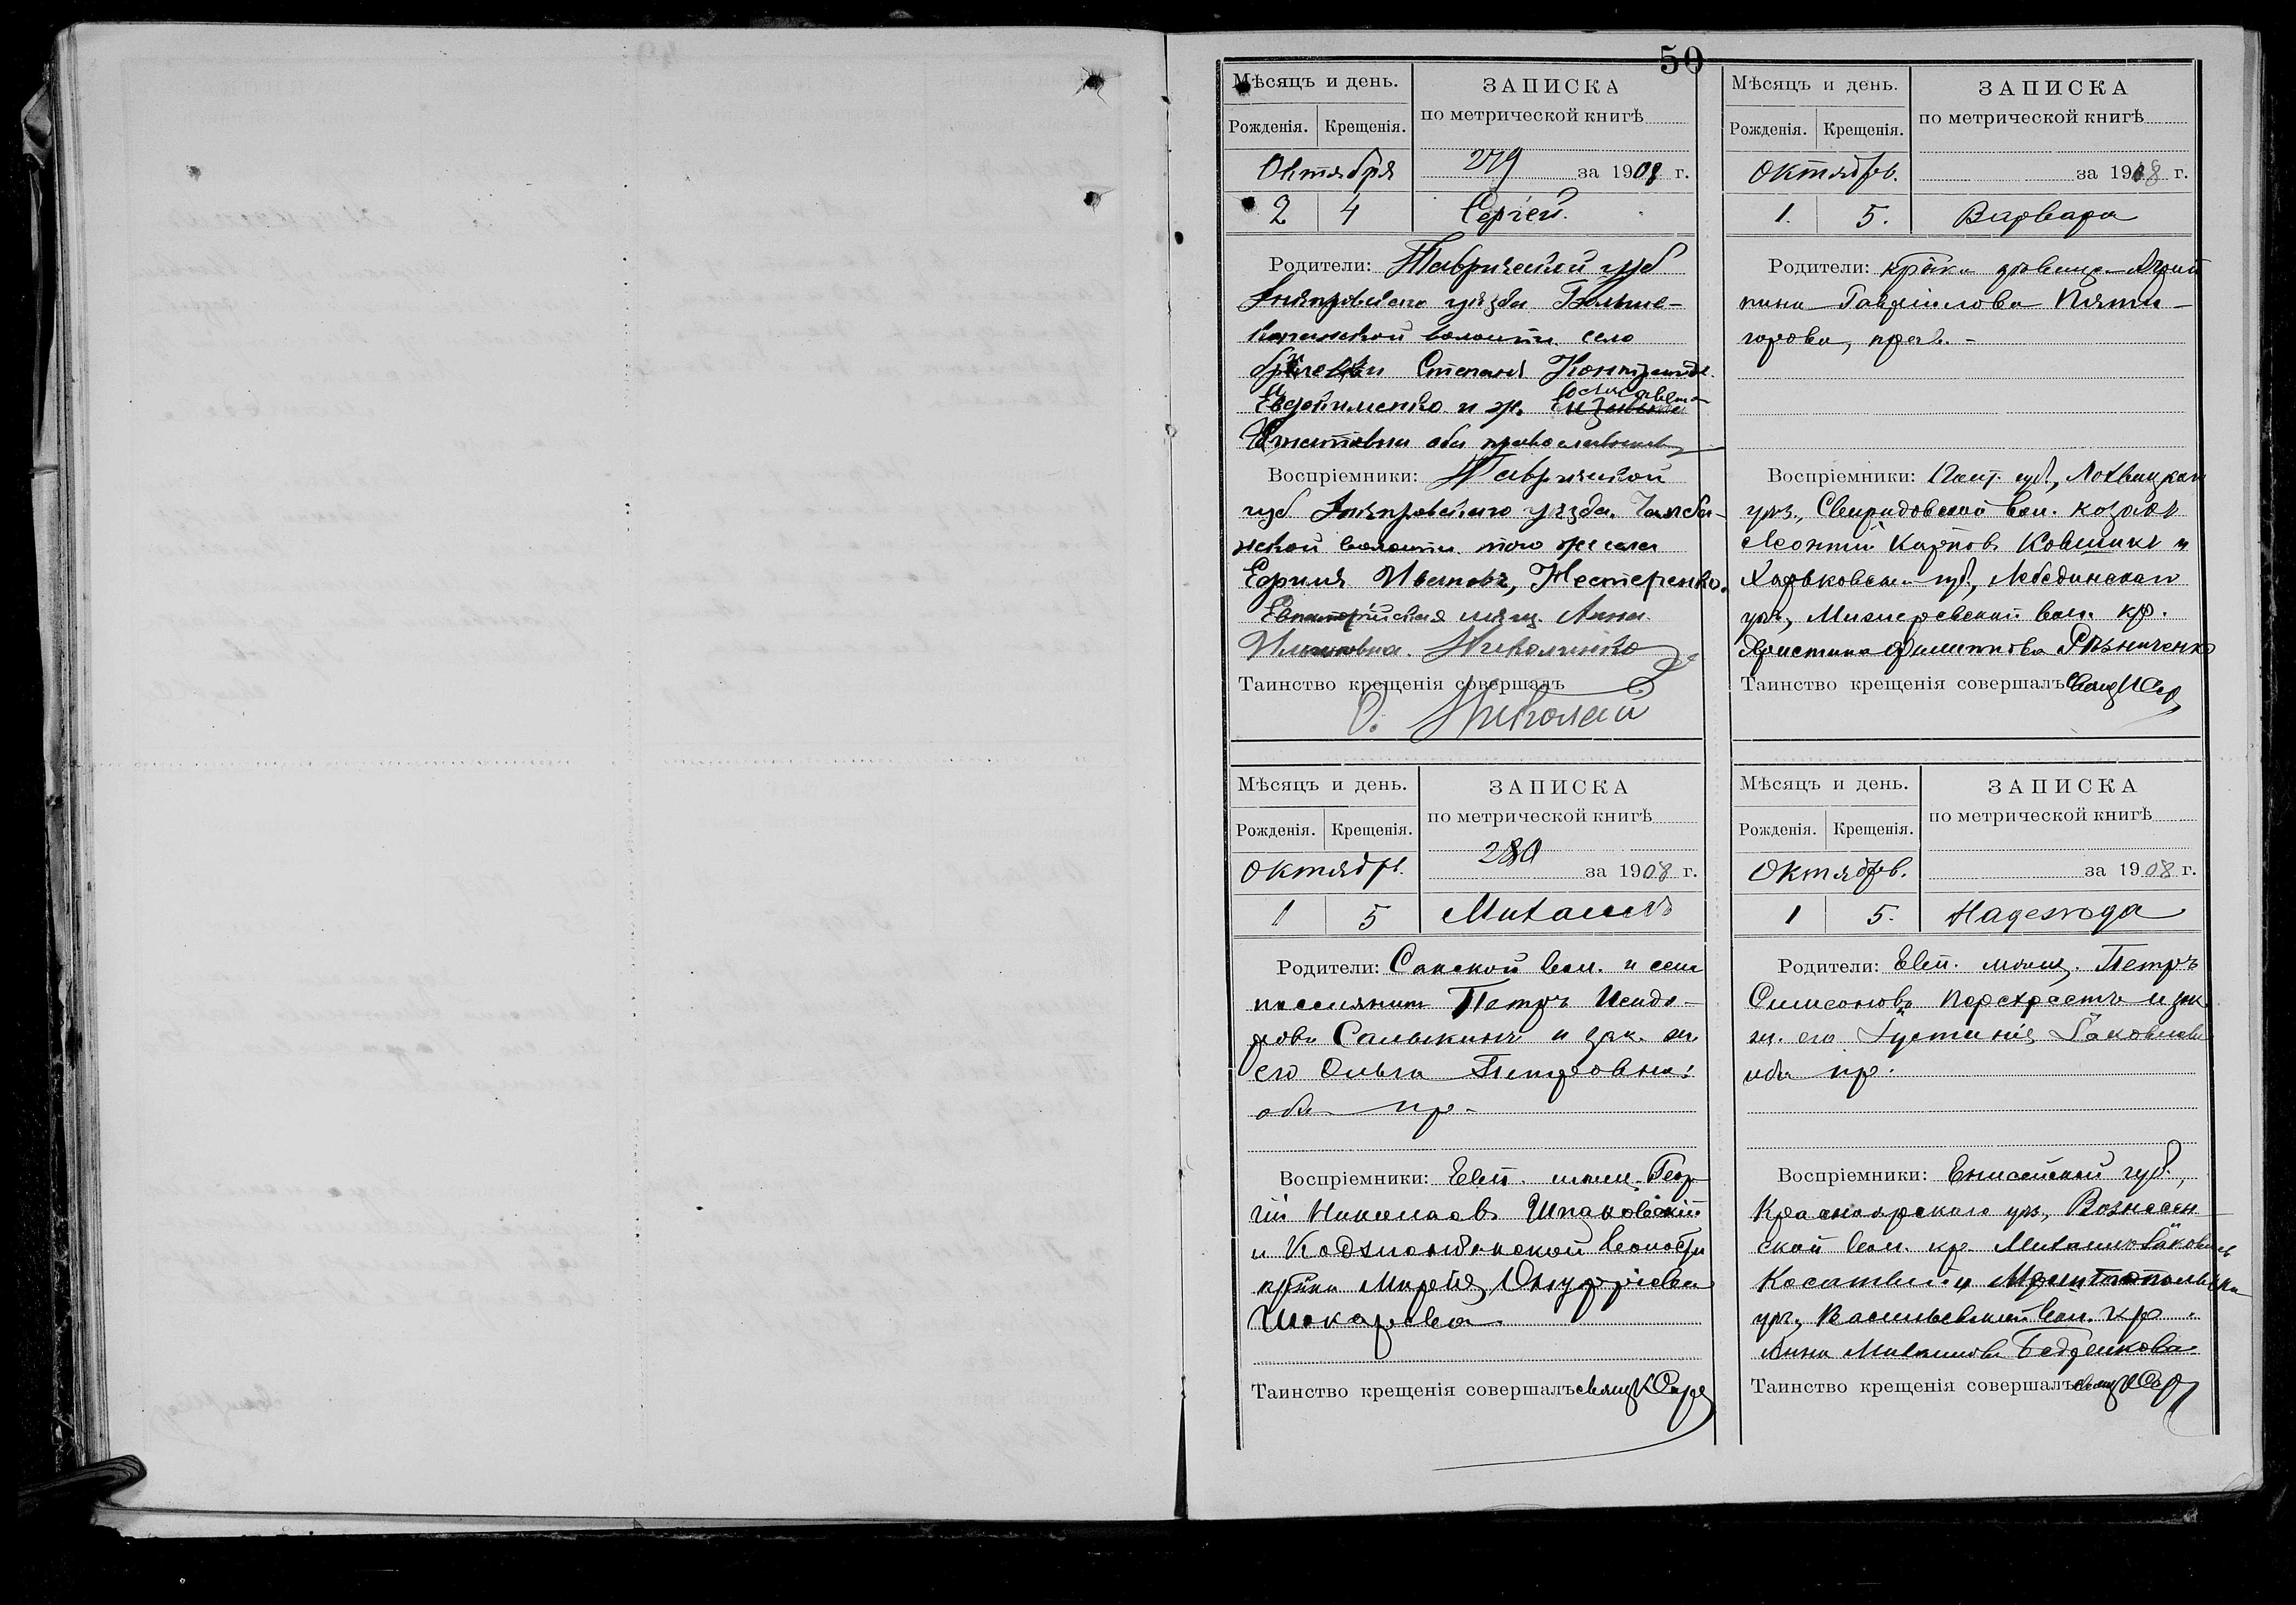 50
Мѣсяцъ и день.
ЗАПИСКА
по метрической книгѣ
Рожденія. Крещенія.
Октября
279 за 1908 г.
2 4 Сергій.
Родители: Таврической губ
Днѣпровскаго уѣзда Больше-
Копанской волости село
Степанъ
Евфименко и ж. Елисавета
оба православные
Воспріемники: Таврической
губ Днѣпровскаго уѣзда. Чалба-
ской волости того же села
Ефримъ Ивановъ, Нестеренко.
Евпаторійская мѣщ. Анна
Николенко
Таинство крещенія совершалъ
О. Николай
Мѣсяцъ и день.
ЗАПИСКА
по метрической книгѣ
Рожденія. Крещенія.
Октябрь.
за 1908 г.
1. 5. Варвара
Родители: кр̃ка дѣвица Агрип
пина Гавріилова Пяти-
горова, прав.-
Воспріемники: Полт. губ., Лохвицкаго
уѣз., Свиридовской вол. козакъ
Леонтій Карповъ Ковшикъ и
Харьковской губ., Лебединскаго
уѣз., вол. кр.
Христина Филиппова Рѣзниченко
Таинство крещенія совершалъ Свящ
Мѣсяцъ и день.
ЗАПИСКА
по метрической книгѣ
Рожденія. Крещенія.
Октябрь.
280
за 1908 г.
1 5 Михаилъ
Родители: Сакской вол. и села
поселянинъ Петръ Исидо-
ровъ Салыкинъ и зак. ж.
его Ольга Петровна:
оба пр-
Воспріемники: Евп. мѣщ. Геор
гій Николаевъ Шпаковскій
и волости
кр̃ка Марѳа Онуфріева
Шокарева
Таинство крещенія совершалъ свящ
Мѣсяцъ и день.
ЗАПИСКА
по метрической книгѣ
Рожденія. Крещенія.
Октябрь.
за 1908 г.
1 5. Надежда
Родители: Евп. мѣщ. Петръ
Симеоновъ Перехрестъ и зак.
ж. его Іустинія Іаковлева
оба пр.
Воспріемники: Енисейской губ.,
Красноярскаго уѣз., Вознесен
ской вол. кр. Михаилъ Іаковлевъ
и Мелитопольска
уѣз., Васильевской вол. кр.
Анна Михаилова Бедренкова
Таинство крещенія совершалъ свящ